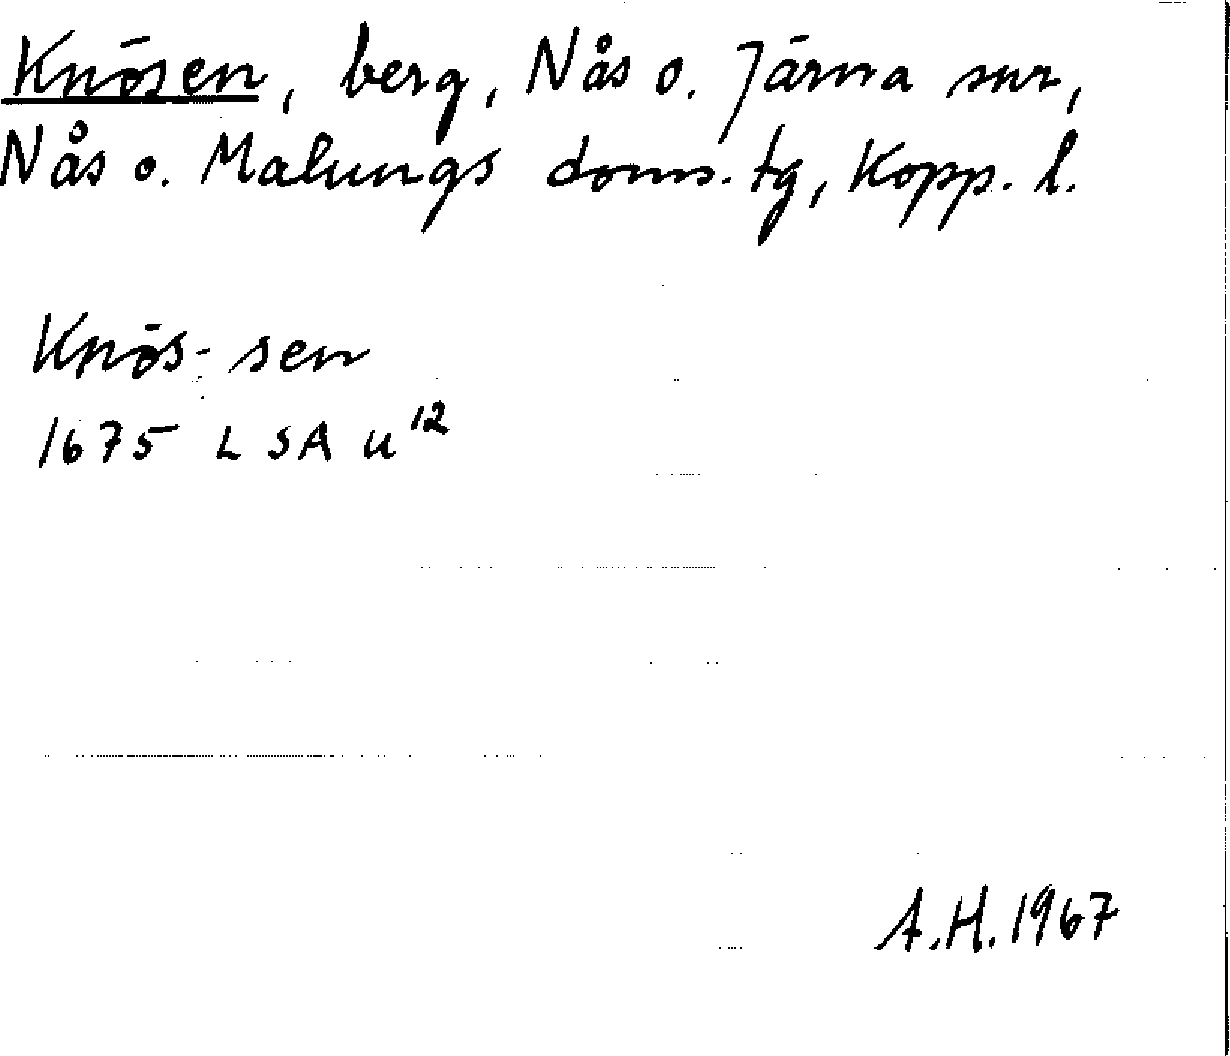 Knösen, berg, Nås o. Järna snr,
Nås o. Malungs doms. tg, Kopp. l.
Knös- sen
1675 LSA u12
A.H. 1967